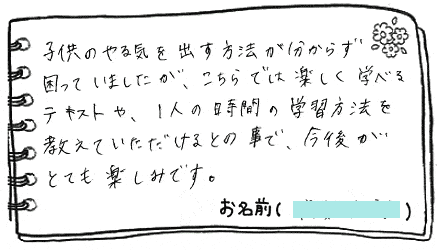 子供のやる気を出す方法が分からず
困っていましたが、こちらでは楽しく学べる
テキストや、1人の時間の学習方法を
教えていただけるとの事で、今後が
とても楽しみです。
お名前( )